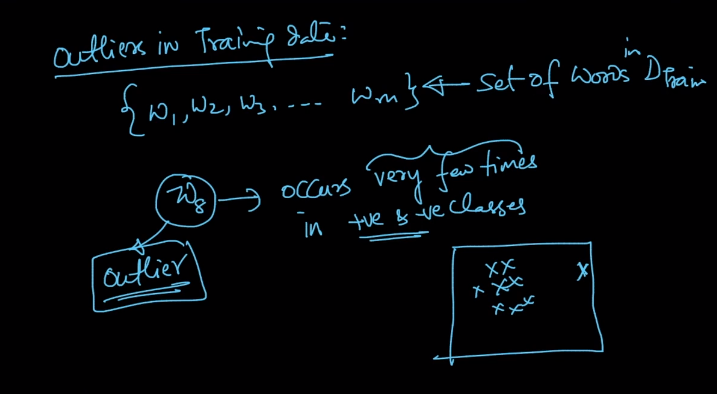 Outliers in Training data:
{ w1, w2, w3, .... wm} ← set of words in DTrain
w8 → occurs very few times
in +ve & -ve classes
outlier